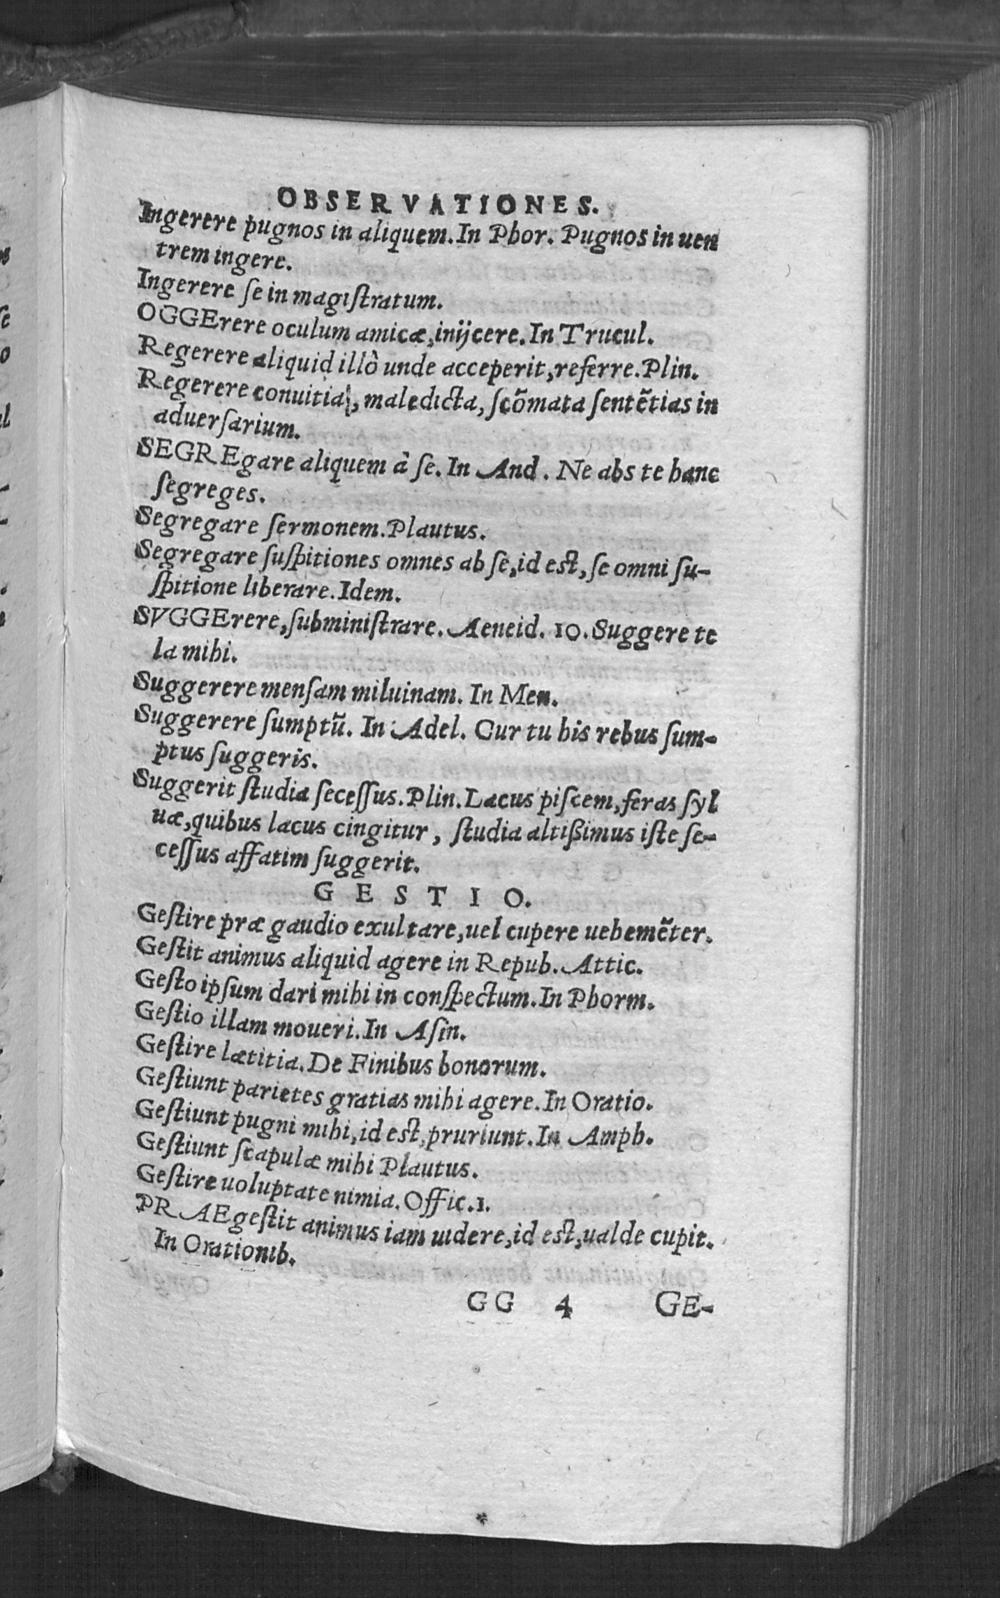 OBSERVATIONES.
Ingerere pugnos in aliquem. In Phor. Pugnos in uen
trem ingere.
Ingerere ſe in magiſtratum.
OGGErere oculum amicæ, inijcere. In Trucul.
Regerere aliquid illò unde acceperit, referre. Plin.
Regerere conuitia, maledicta, ſcõmata ſentẽtias in
aduerſarium.
SEGREgare aliquem à ſe. In And. Ne abs te hanc
ſegreges.
Segregare ſermonem. Plautus.
Segregare ſuſpitiones omnes ab ſe, id eſt, ſe omni ſu-
ſpitione liberare. Idem.
SVGGErere, ſubminiſtrare. Aeneid. 10. Suggere te
la mihi.
Suggerere menſam miluinam. In Men.
Suggerere ſumptũ. In Adel. Cur tu his rebus ſum-
ptus ſuggeris.
Suggerit ſtudia ſeceſſus. Plin. Lacus piſcem, feras ſyl
uæ, quibus lacus cingitur, ſtudia altißimus iſte ſe-
ceſſus affatim ſuggerit.
GESTIO.
Geſtire præ gaudio exultare, uel cupere uehemẽter.
Geſtit animus aliquid agere in Repub. Attic.
Geſto ipſum dari mihi in conſpectum. In Phorm.
Geſtio illam moueri. In Aſin.
Geſtire lætitia. De Finibus bonorum.
Geſtiunt parietes gratias mihi agere. In Oratio.
Geſtiunt pugni mihi, id eſt, pruriunt. In Amph.
Geſtiunt ſcapulæ mihi Plautus.
Geſtire uoluptate nimia. Offic. 1.
PRAEgeſtit animus iam uidere, id eſt, ualde cupit.
In Orationib.
GG 4 GE-